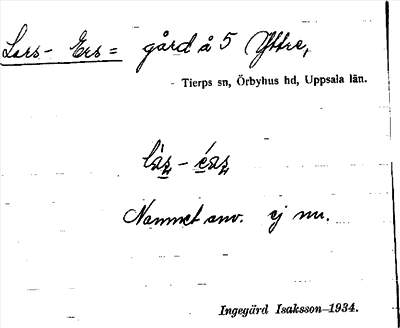 Lars-Ers = gård å 5 Yttre,
Tierps sn, Örbyhus hd, Uppsala län.
Namnet anv. ej nu.
Ingegärd Isaksson—1934.